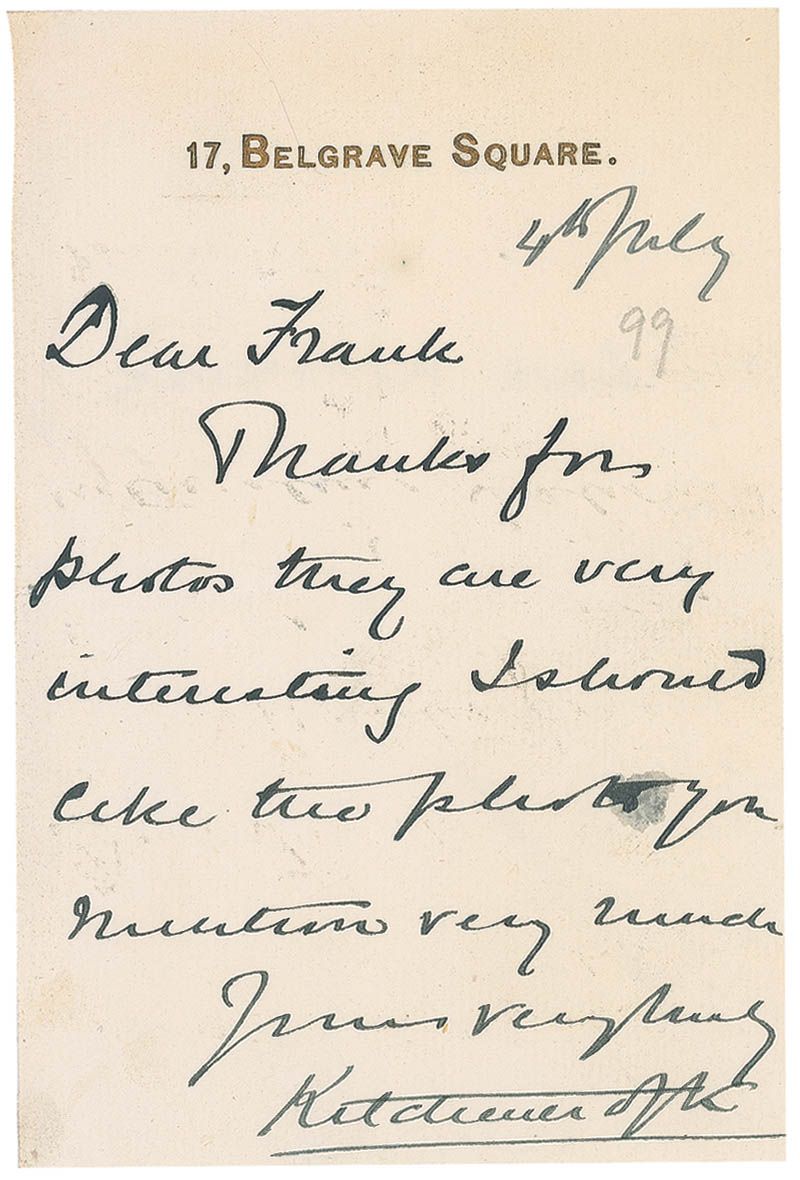 17, BELGRAVE SQUARE.
4th July
99
Dear Frank
Thanks for
photos they are very
interesting I should
like the photo you
mention very much
Yours very truly
Kitchener of K